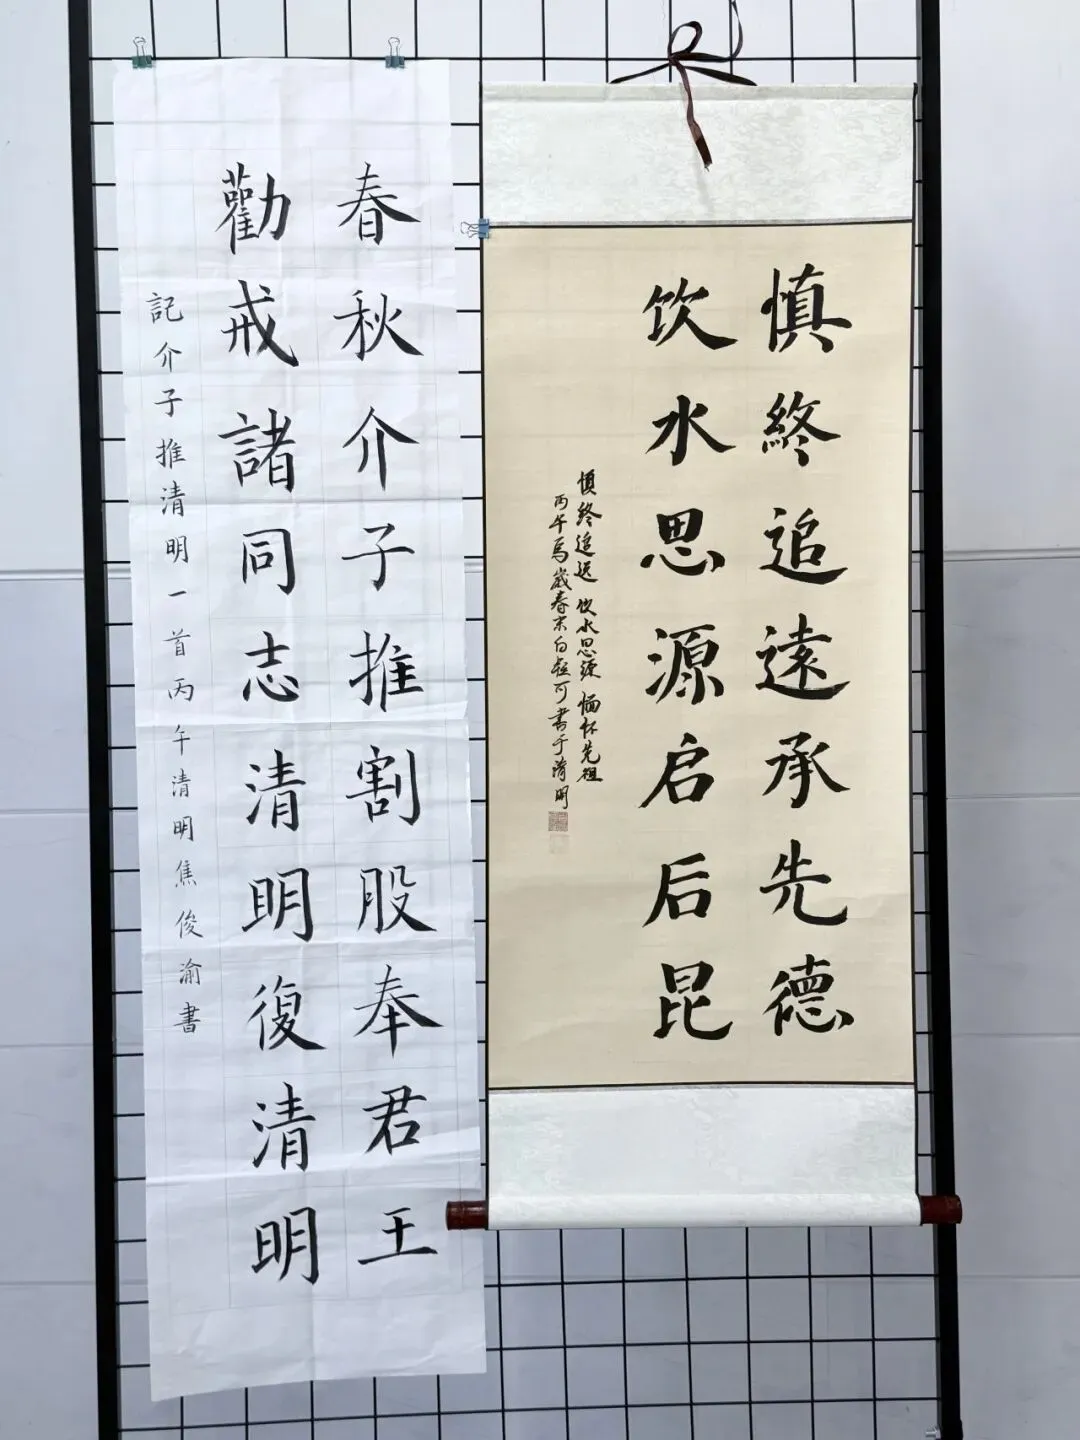 慎終追遠承先德
饮水思源启后昆
慎終追远 饮水思源 缅怀先祖
丙午馬歲春末白 可書于清明
春秋介子推割股奉君王
勸戒諸同志清明復清明
記介子推清明一首丙午清明焦俊渝書